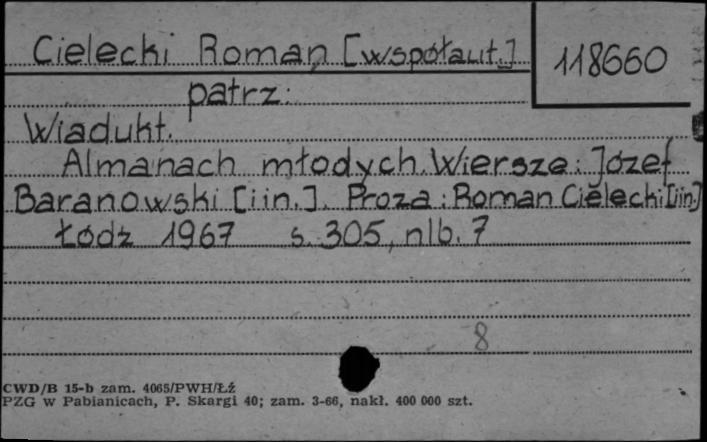 Cielecki Roman [współaut.]
118660
patrz:
Wiadukt.
Almanach młodych. Wiersze: Józef
Baranowski [i in.]. Proza: Roman Cielecki [i in.]
Łódź 1967 s. 305, nlb. 7
8
CWD/B 15-b zam. 4065/PWH/Łź
PZG w Pabianicach, P. Skargi 40; zam. 3-66, nakł. 400 000 szt.